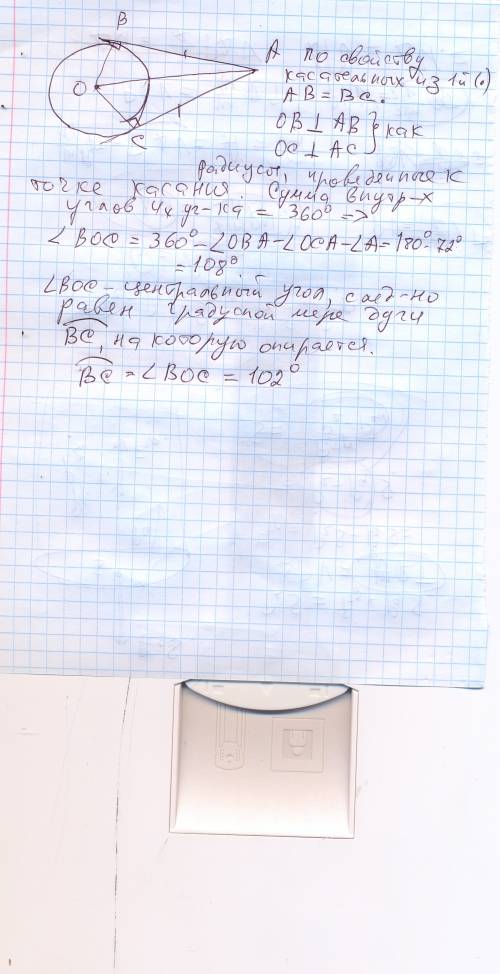 B
A по свойству
O
касательных из 1й (·)
AB = BC.
C
OB ⊥ AB
OC ⊥ AC } как
радиусы, проведённые к
точке касания. Сумма внутр-х
углов 4х уг-ка = 360° =>
∠BOC = 360° - ∠OBA - ∠OCA - ∠A = 180° - 72°
= 108°
∠BOC - центральный угол, след-но
равен градусной мере дуги
BC, на которую опирается.
BC = ∠BOC = 102°